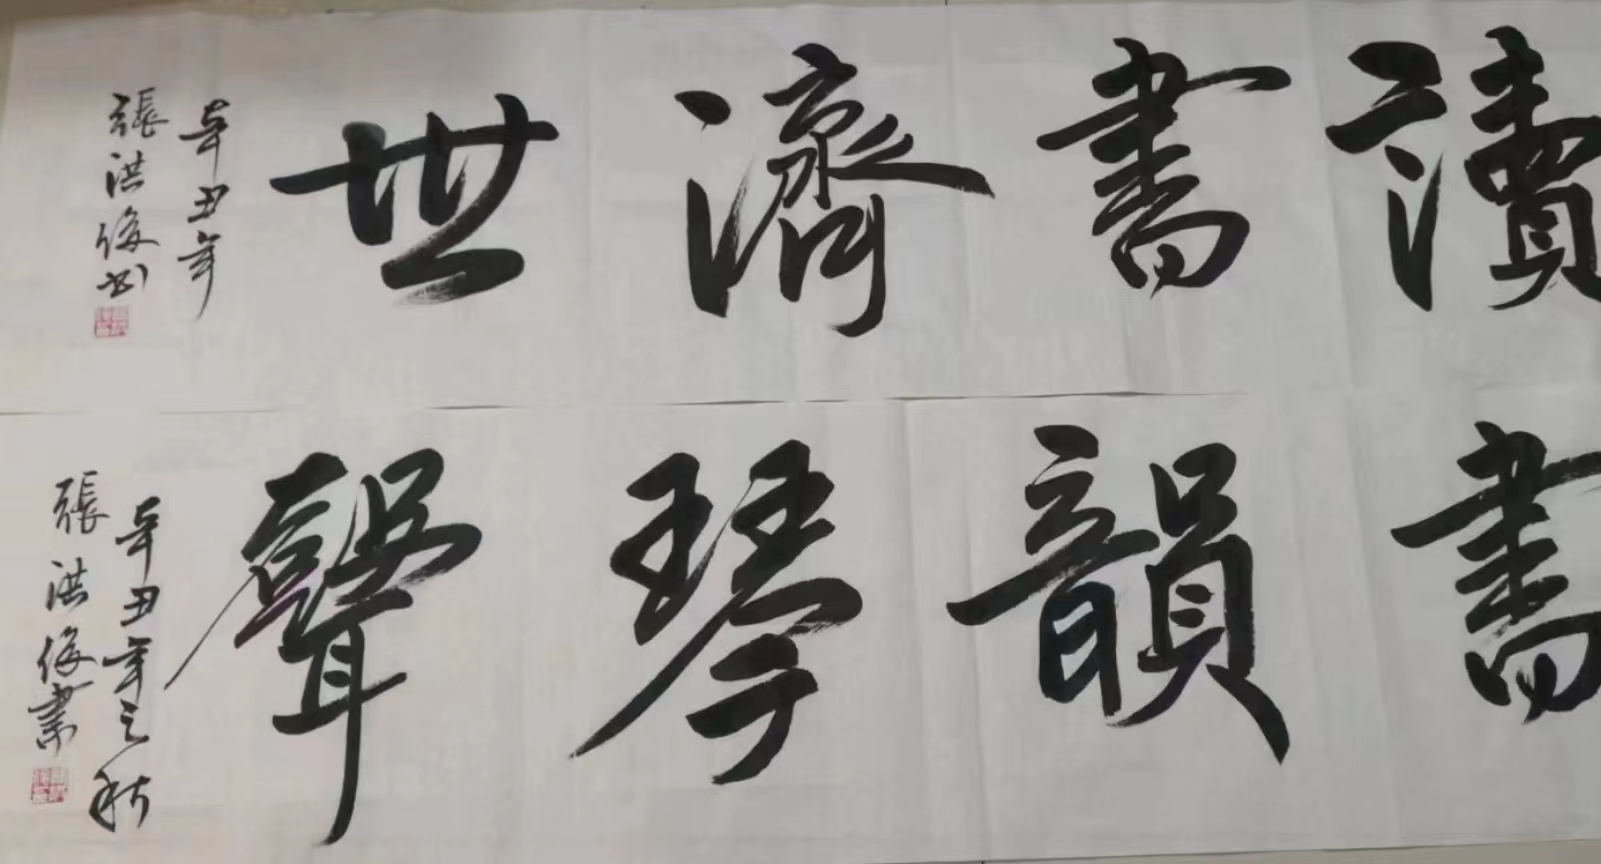 讀書濟世
辛丑年
張洪俊书
書韻琴聲
辛丑年之秋
張洪俊書